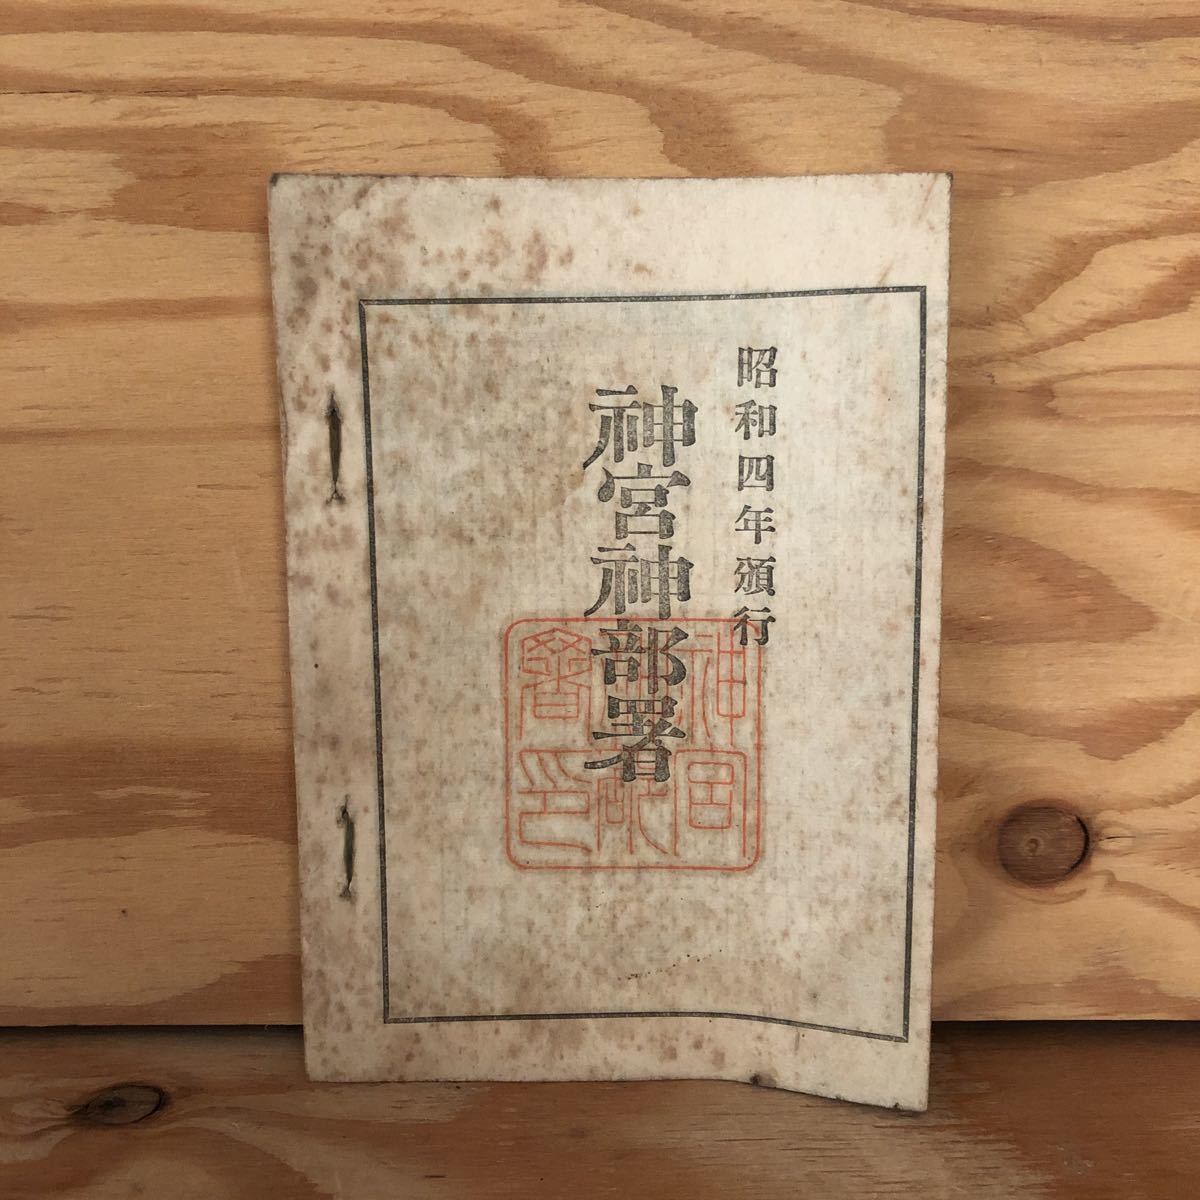 昭和四年頒行
神宮神部署
神宮神部署印